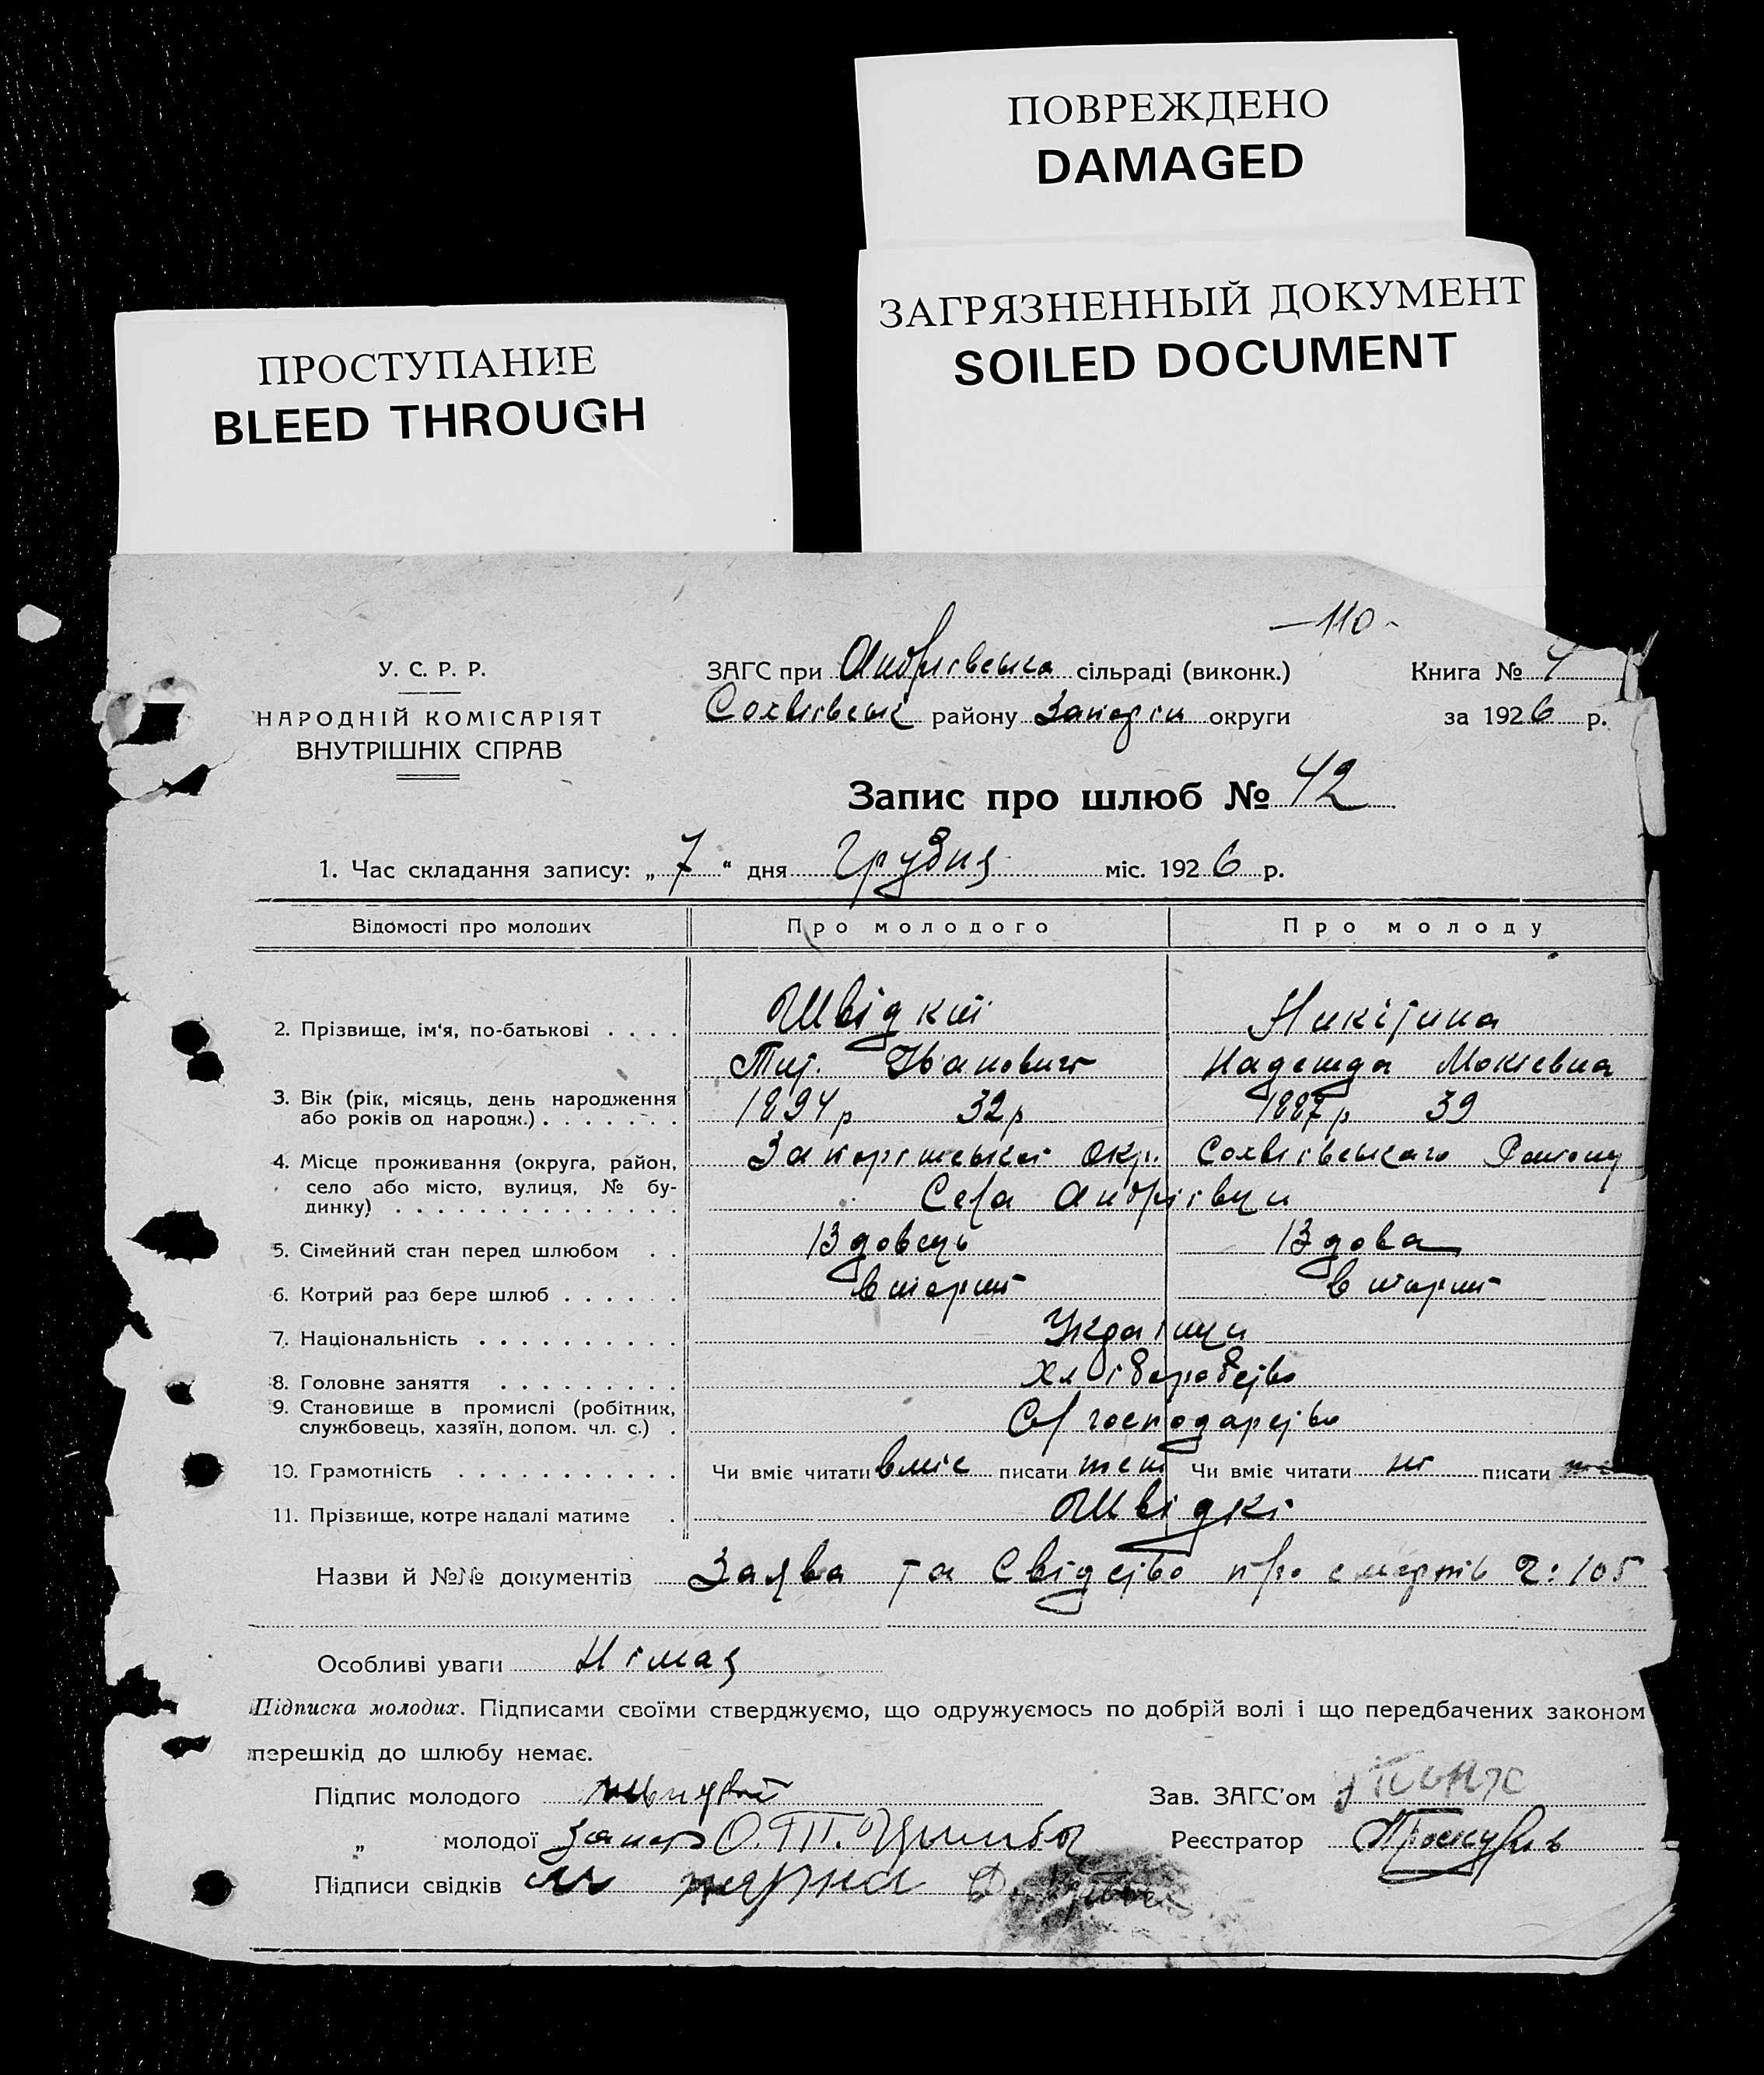 ПОВРЕЖДЕНО
DAMAGED
ЗАГРЯЗНЕННЫЙ ДОКУМЕНТ
SOILED DOCUMENT
ПРОСТУПАНИЕ
BLEED THROUGH
—110-
У. С. Р. Р.
НАРОДНІЙ КОМІСАРІЯТ
ВНУТРІШНІХ СПРАВ
ЗАГС при Андріївська сільраді (виконк.)
Софіівськ району Запоріж округи
Книга №
за 1926 р.
Запис про шлюб № 42
1. Час складання запису: „7“ дня Грудня міс. 1926 р.
Відомості про молодих Про молодого Про молоду
2. Прізвище, ім'я, по-батькові . . . . Швідкій Никітина
Тит. Іванович Надежда Мокіевна
3. Вік (рік, місяць, день народження 1894 р 32 р 1887 р 39
або років од народж.) . . . . . . .
4. Місце проживання (округа, район, Запоріжської Окр. Софіівського Району
село або місто, вулиця, № бу- Села Андріівки
динку) . . . . . . . . . . . . . .
5. Сімейний стан перед шлюбом . . Вдовець Вдова
6. Котрий раз бере шлюб . . . . . . вторий вторий
7. Національність . . . . . . . . . . Українци
8. Головне заняття . . . . . . . . . Хліборобство
9. Становище в промислі (робітник, С/господарство
службовець, хазяїн, допом. чл. с.) .
10. Грамотність . . . . . . . . . . . Чи вміє читати вміє писати теж Чи вміє читати ні писати
11. Прізвище, котре надалі матиме . Швідкі
Назви й №№ документів Заява та Свідство про смерть ч: 105
Особливі уваги Німая
Підписка молодих. Підписами своїми стверджуємо, що одружуємось по добрій волі і що передбачених законом
перешкід до шлюбу немає.
Підпис молодого
Зав. ЗАГС'ом
„ молодої О. Т.
Реєстратор
Підписи свідків